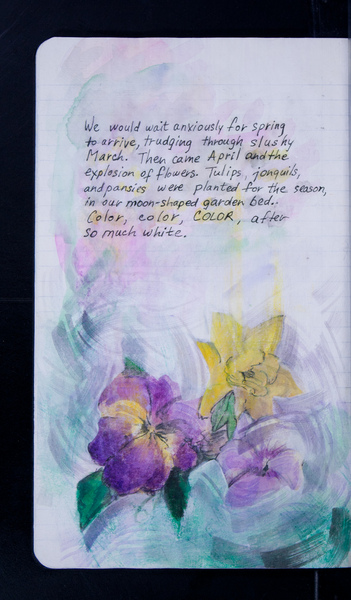 We would wait anxiously for spring
to arrive, trudging through slushy
March. Then came April and the
explosion of flowers. Tulips, jonquils,
and pansies were planted for the season,
in our moon-shaped garden bed..
Color, color, COLOR, after
so much white.